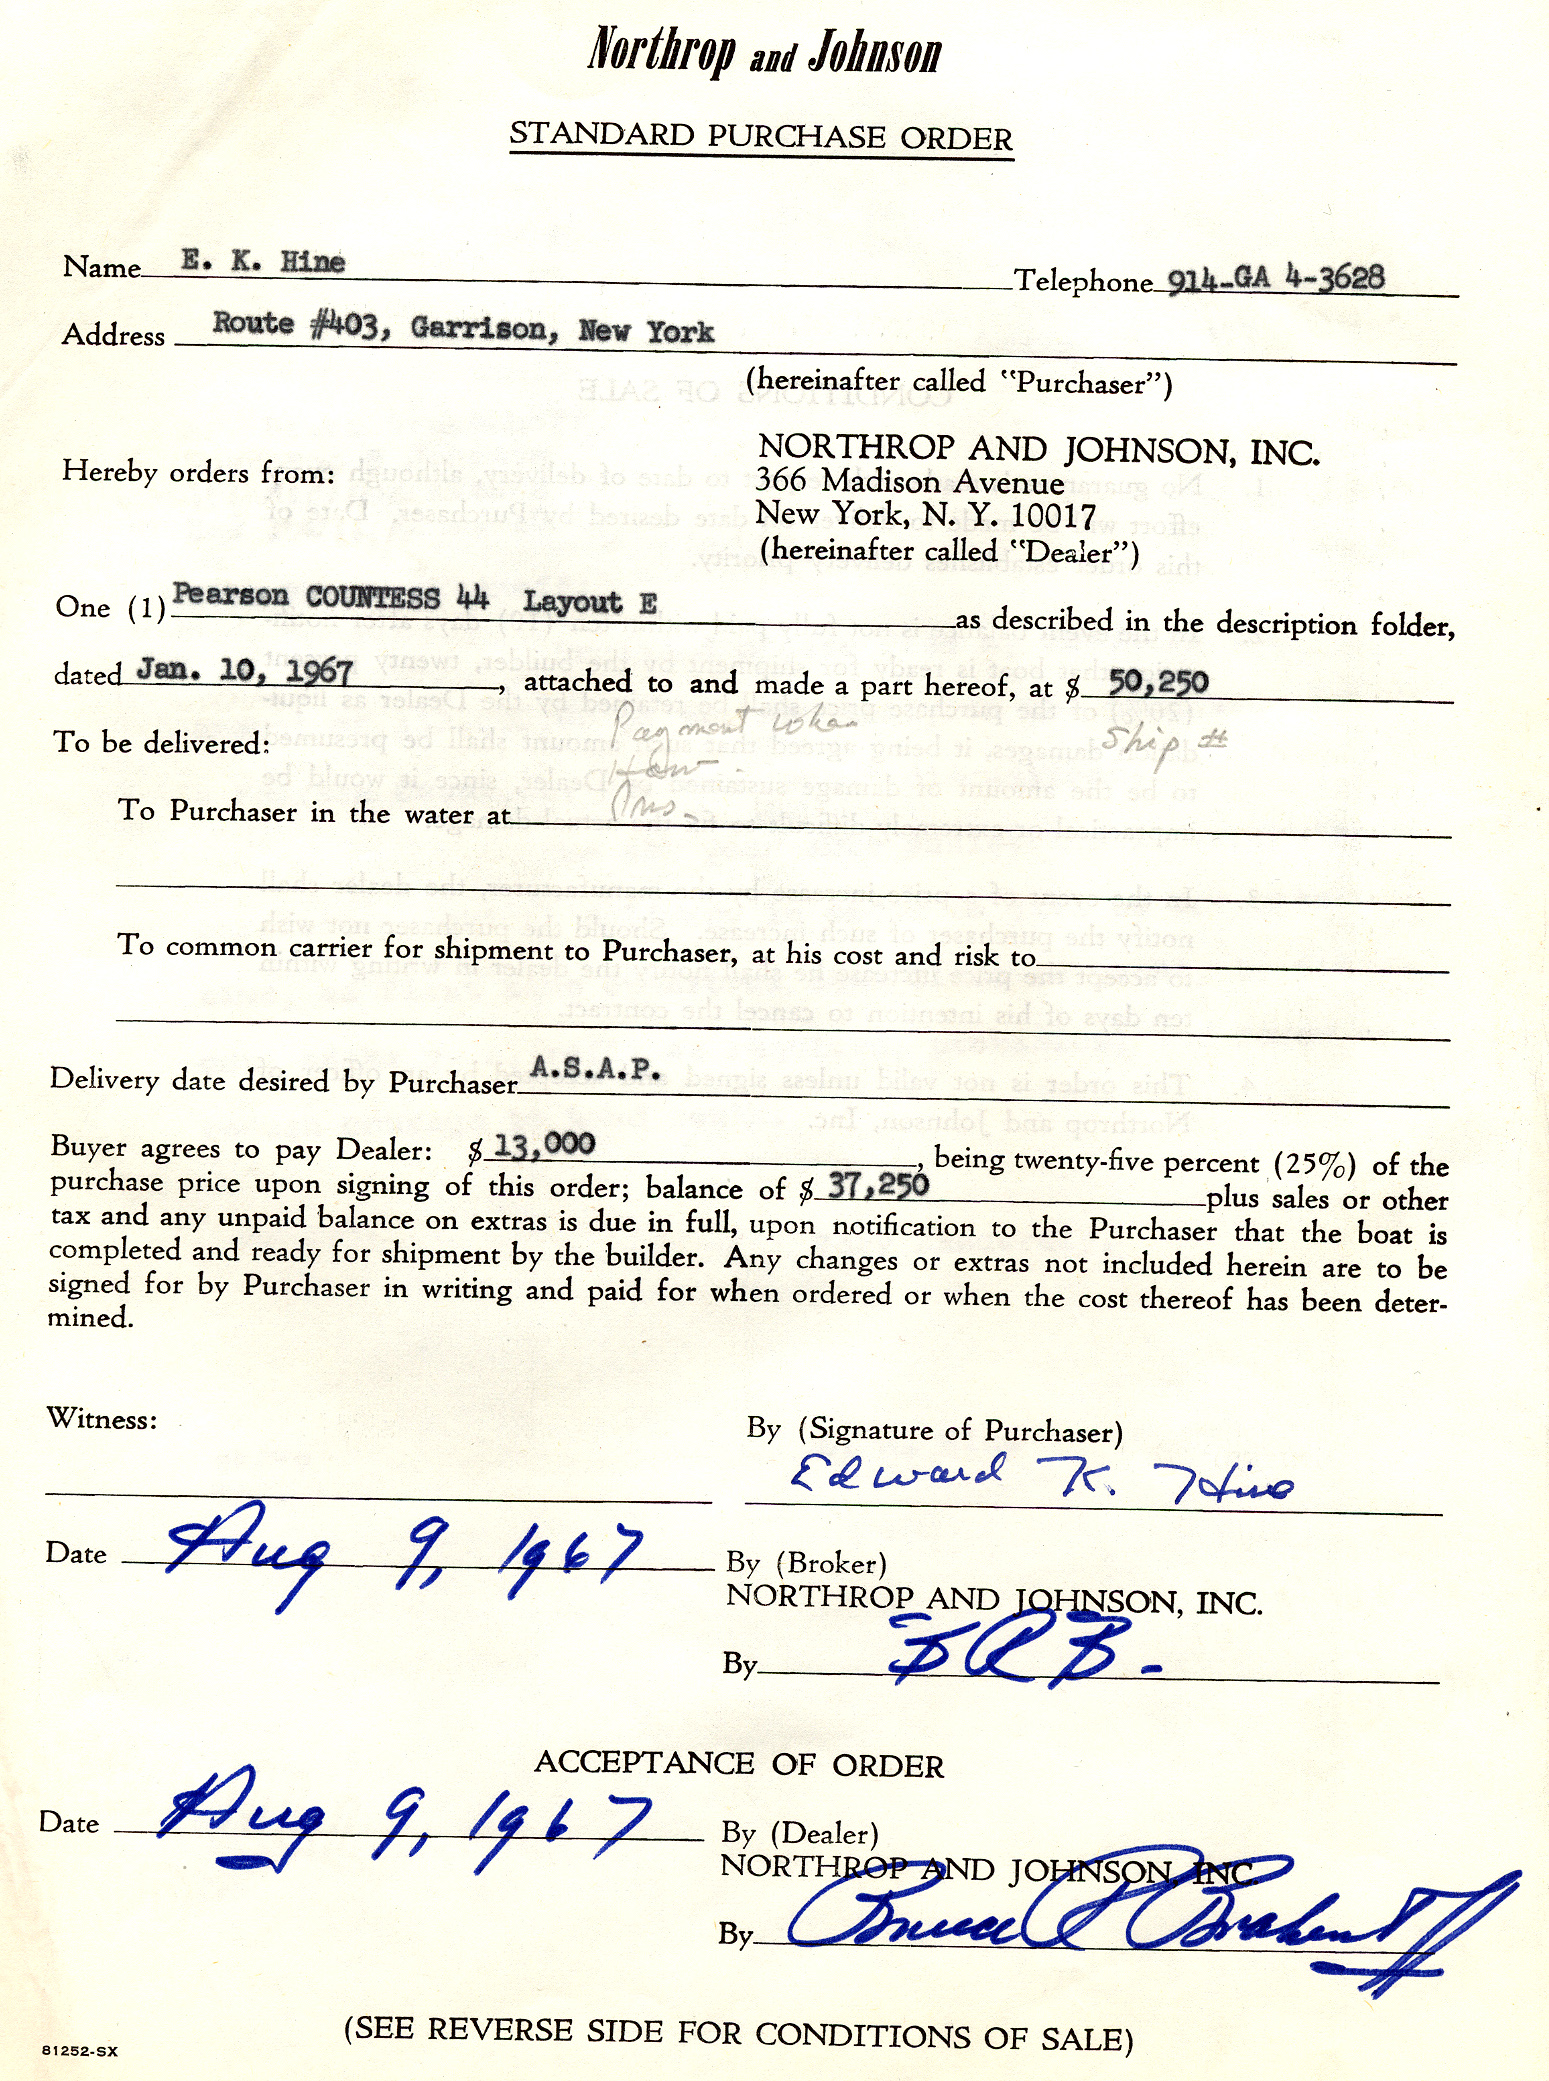 Northrop and Johnson
STANDARD PURCHASE ORDER
Name E. K. Hine Telephone 914-GA 4-3628
Address Route #403, Garrison, New York
(hereinafter called "Purchaser")
Hereby orders from:
NORTHROP AND JOHNSON, INC.
366 Madison Avenue
New York, N. Y. 10017
(hereinafter called "Dealer")
One (1) Pearson COUNTESS 44 Layout E as described in the description folder,
dated Jan. 10, 1967, attached to and made a part hereof, at $ 50,250
Payment when Ship #
To be delivered:
How
To Purchaser in the water at Ins.
To common carrier for shipment to Purchaser, at his cost and risk to
Delivery date desired by Purchaser A.S.A.P.
Buyer agrees to pay Dealer: $ 13,000, being twenty-five percent (25%) of the
purchase price upon signing of this order; balance of $ 37,250 plus sales or other
tax and any unpaid balance on extras is due in full, upon notification to the Purchaser that the boat is
completed and ready for shipment by the builder. Any changes or extras not included herein are to be
signed for by Purchaser in writing and paid for when ordered or when the cost thereof has been deter-
mined.
Witness:
By (Signature of Purchaser)
Edward K. Hine
Date Aug 9, 1967
By (Broker)
NORTHROP AND JOHNSON, INC.
By BRB-
ACCEPTANCE OF ORDER
Date Aug 9, 1967
By (Dealer)
NORTHROP AND JOHNSON, INC.
By Bruce R
(SEE REVERSE SIDE FOR CONDITIONS OF SALE)
81252-SX